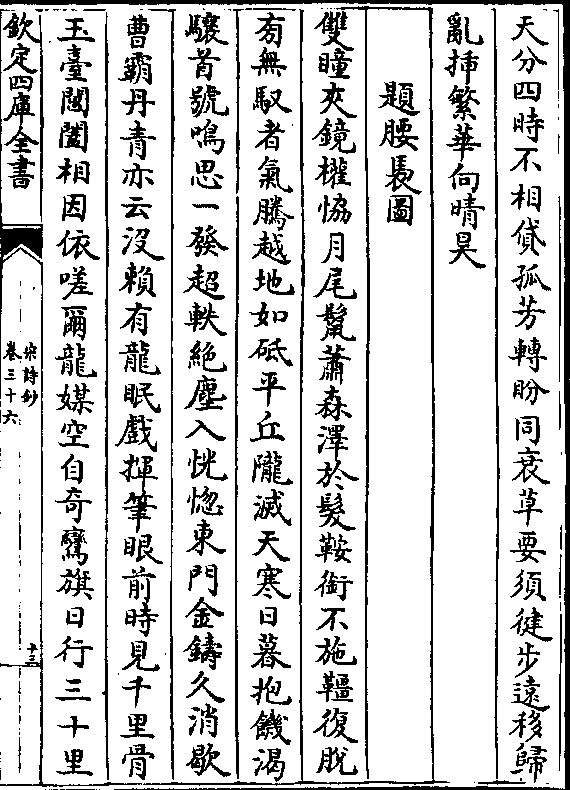 天分四時不相貸孤芳轉盼同衰草要須健步遠移歸
亂挿繁華向晴昊
題腰褭圖
雙瞳夾鏡權協月尾鬛蕭森澤於髮鞍銜不施韁復脫
旁無馭者氣騰越地如砥平丘隴滅天寒日暮抱饑渴
驤首號鳴思一發超軼絶塵入恍惚東門金鑄久消歇
曹霸丹青亦云沒賴有龍眠戲揮筆眼前時見千里骨
玉臺閶闔相因依嗟爾龍媒空自奇鸞旗日行三十里
欽定四庫全書
宋詩鈔
卷三十六
十三